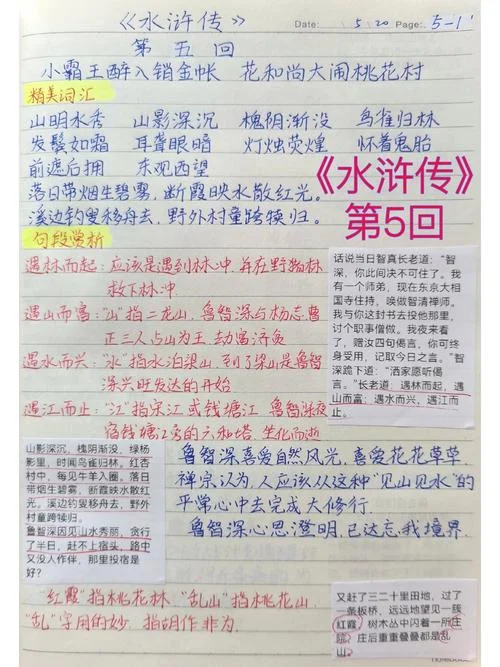 《水浒传》
Date: 5/20 Page: 5-1
第五回
小霸王醉入销金帐 花和尚大闹桃花村
精美词汇
山明水秀 山影深沉 槐阴渐没 鸟雀归林
发鬓如霜 耳聋眼暗 灯烛荧煌 怀着鬼胎
前遮后拥 东观西望
落日带烟生碧雾,断霞映水散红光。
溪边钓叟移舟去,野外村童跨犊归。
《水浒传》
第5回
句段赏析
遇林而起:应该是遇到林冲,并在野猪林
救下林冲
遇山而富:"山"指二龙山,鲁智深与杨志曹
正三人占山为王,劫富济贫
遇水而兴:"水"指水泊梁山,到了梁山是鲁智
深兴旺发达的开始
遇江而止:"江"指宋江或钱塘江,鲁智深夜
宿钱塘江旁的六和塔,坐化而逝
话说当日智真长老道:"智
深,你此间决不可住了。我
有一个师弟,现在东京大相
国寺住持,唤做智清禅师。
我与你这封书去投他那里,
讨个职事僧做。我夜来看
了,赠汝四句偈言,你可终
身受用,记取今日之言。"智
深跪下道:"洒家愿听偈
言。"长老道:"遇林而起,遇
山而富;遇水而兴,遇江而
止。
山影深沉,槐阴渐没,绿杨
影里,时闻鸟雀归林,红杏
村中,每见牛羊入圈。落日
带烟生碧雾,断霞映水散红
光。溪边钓叟移舟去,野外
村童跨犊归。
鲁智深因见山水秀丽,贪行
了半日,赶不上宿头,路中
又没人作伴,那里投宿是
好?
鲁智深喜爱自然风光,喜爱花花草草
禅宗认为,人应该从这种"见山见水"的
平常心中去完成大修行.
鲁智深心思澄明,已达忘我境界.
"红霞"指桃花林,"乱山"指桃花山
"乱"字用的妙,指胡作非为.
又赶了三二十里田地,过了
一条板桥,远远地望见一簇
红霞,树木丛中闪着一所庄
院,庄后重重叠叠都是乱
山。